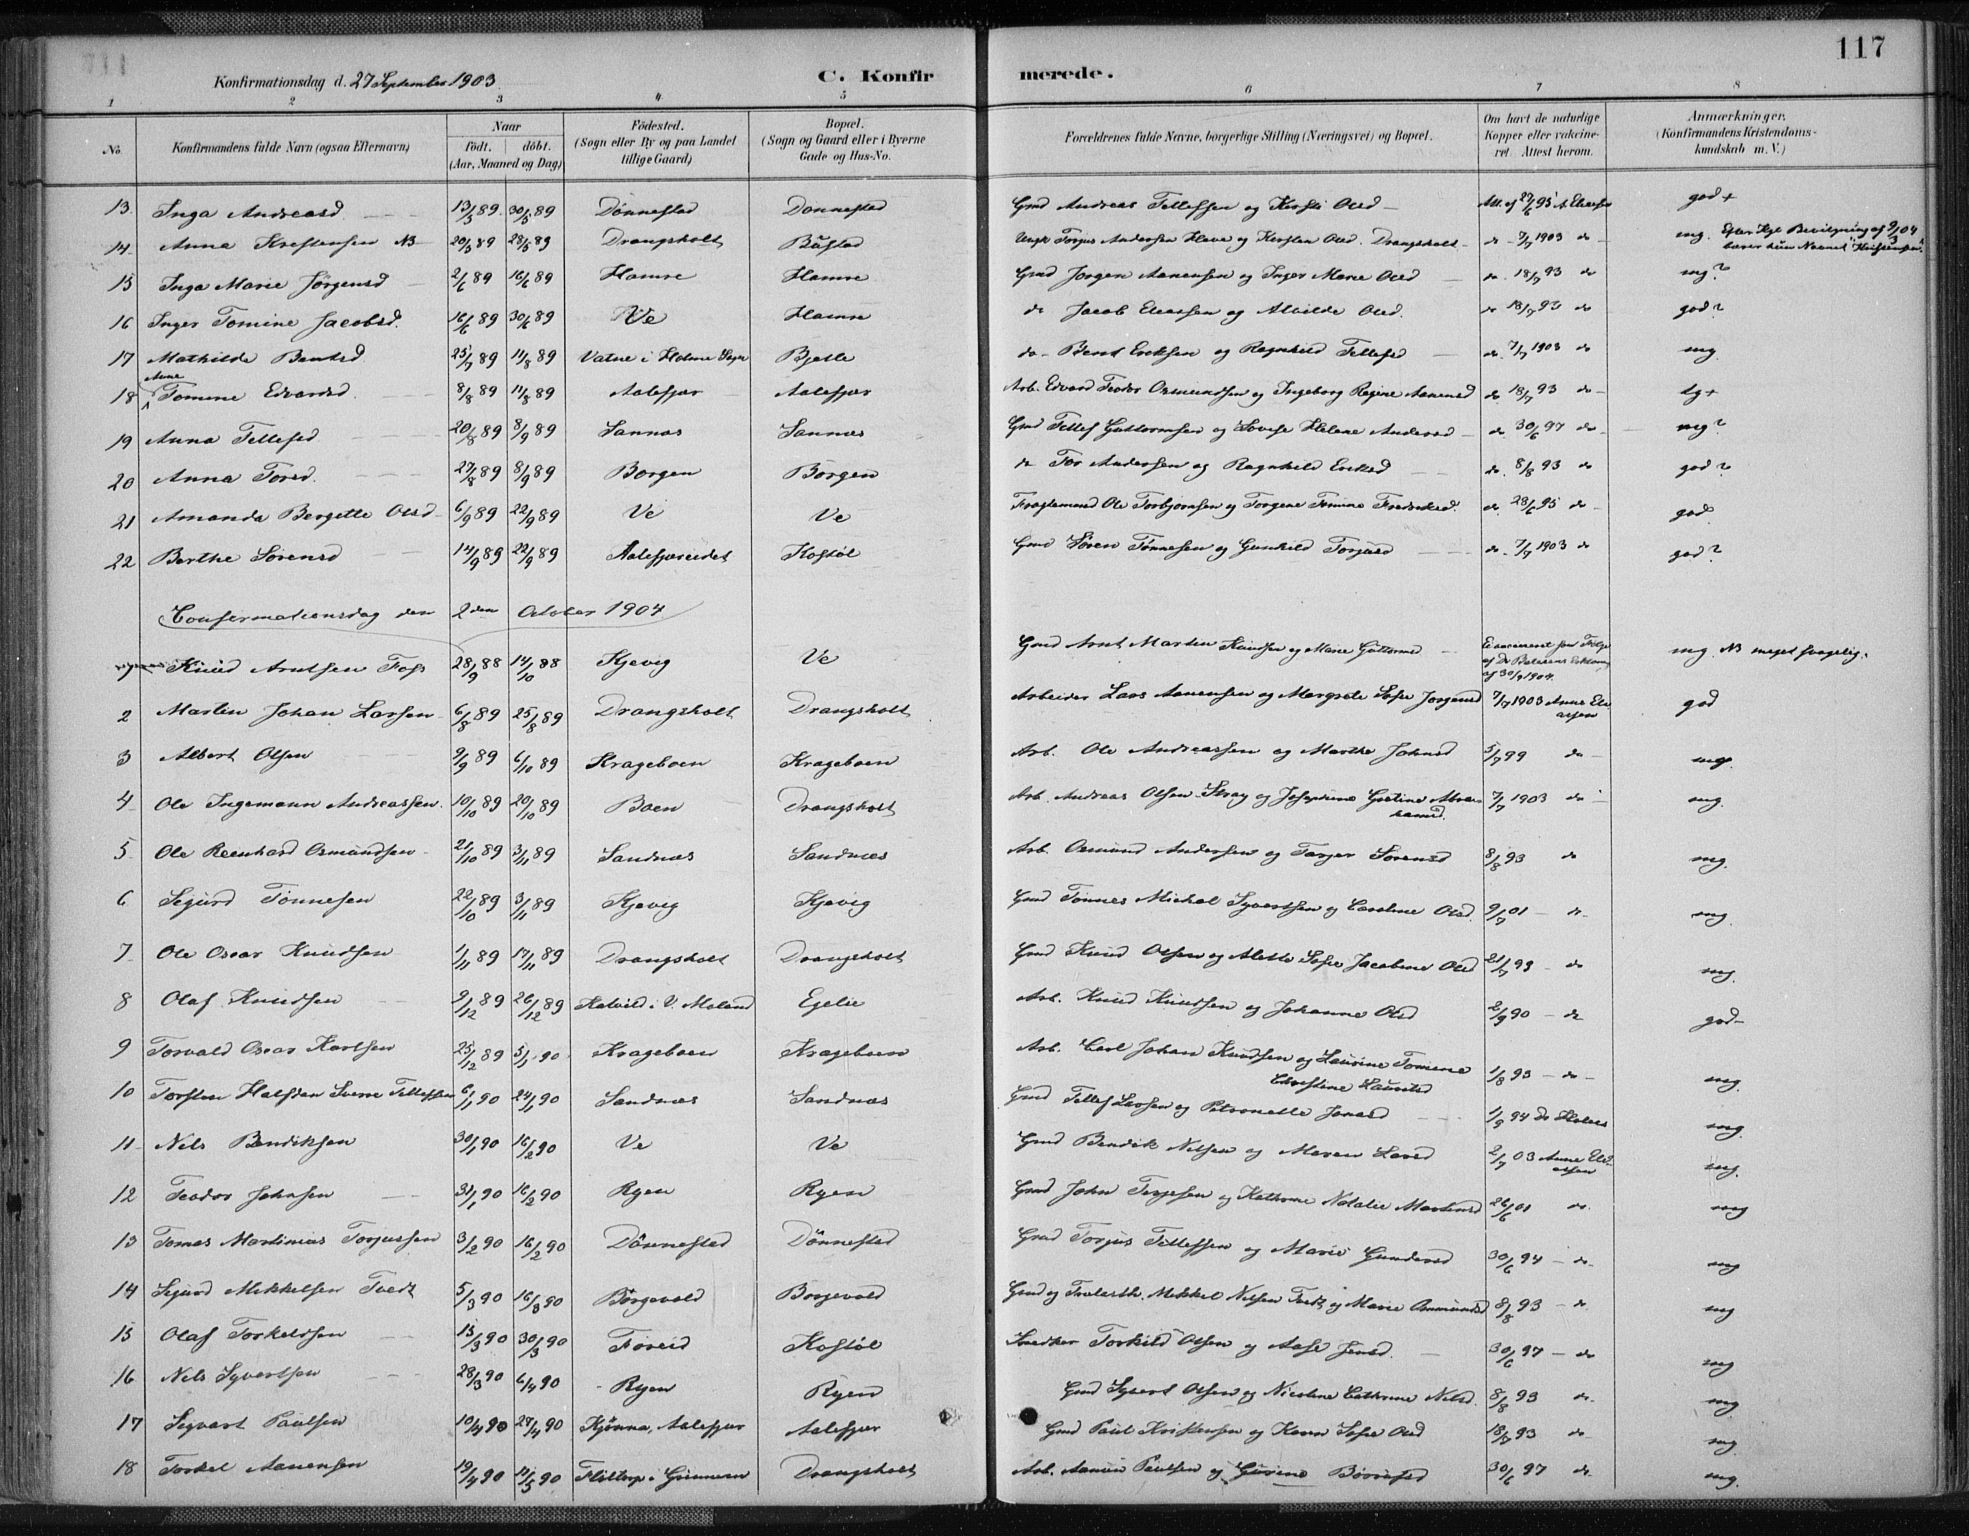 117
Konfirmationsdag d. 27 September 1903. C. Konfirmerede.
1 2 3 4 5 6 7 8
No. Konfirmandens fulde Navn (ogsaa Efternavn) Naar født. døbt. (Aar, Maaned og Dag) Fødested. (Sogn eller By og paa Landet tillige Gaard) Bopæl. (Sogn og Gaard eller i Byerne Gade og Hus-No. Forældrenes fulde Navne, borgerlige Stilling (Næringsvei) og Bopæl. Om havt de naturlige Kopper eller vakcineret. Attest herom. Anmærkninger. (Konfirmandens Kristendomskundskab m. V.)
13. Inga Andreasd. 13/5 89. 30/5 89 Dønnestad Dønnestad Gmd Andreas Tellefsen og Kirsti Olsd Att. af 27/6 95 A. Eliassen god +
14 Anna Kristensen NB 20/5 89 28/5 89 Drangsholt Bustad Ungk Torjus Andersen Kleve og Kirsten Olsd. Drangsholt do 7/7 1903 do mg. Efter Kgl Bevilgning af 9/3 04 bærer hun Navnet "Kristensen".
15 Inga Marie Jörgensd 2/6 89 16/6 89 Hamre Hamre Gmd Jörgen Aanensen og Inger Marie Olsd do 18/7 93 do mg?
16 Inger Tomine Jacobsd. 16/6 89 30/6 89 Ve Hamre do Jacob Eliassen og Alvilde Olsd. do 18/7 93 do god?
17 Mathilde Bentsd 25/7 89 11/8 89 Vatne i Holme Sogn Bjelle do Bent Eriksen og Ragnhild Tellefsd do 7/7 1903 do mg
18 Anne Tomine Edvardsd. 8/8 89 11/8 89 Aalefjær Aalefjær Arb. Edvard Teodor Osmundsen og Ingeborg Regine Aanensd do 18/7 93 do tg +
19 Anna Tellefsd 20/8 89 8/9 89 Sannæs Sannæs Gmd Tellef Guttormsen og Lovise Helene Andersd do 30/6 97 do mg?
20 Anna Torsd. 27/8 89 8/9 89 Borgen Borgen do Tor Andersen og Ragnhild Eriksd do 8/8 93 do god?
21 Amanda Bergette Olsd 6/9 89 22/9 89 Ve Ve Fragtemand Ole Torbjørnsen og Torgene Tomine Frederiksd. do. 28/6 95 do god?
22 Berthe Sørensd 14/9 89 22/9 89 Aalefjæreidet Kostöl Gmd Sören Tönnesen og Gunhild Torjusd do 7/7 1903 do god?
Confirmationsdag den 2den October 1904
1 Knud Arntsen Foss 28/9 88 14/10 88 Kjevig Ve Gmd Arnt Martin Knudsen og Marie Guttormsd mg. NB meget svagelig.
2 Martin Johan Larsen 6/8 89 25/8 89 Drangsholt Drangsholt Arbeider Lars Aanensen og Margrete Sofie Jörgensd 7/7 1903 Anne Eliassen god
3 Albert Olsen 9/9 89 6/10 89 Krageboen Krageboen Arb. Ole Andreassen og Marthe Johnsd 5/7 99 do mg.
4 Ole Ingemann Andreassen. 10/10 89 20/10 89 Boen Drangsholt Arb. Andreas Olsen Stray og Josephine Gustine Abrahamsd. 7/7 1903 do mg.
5 Ole Reinhard Osmundsen 21/10 89 3/11 89 Sandnæs Sandnæs Arb. Osmund Andersen og Torjer Sørensd 8/8 93 do mg.
6 Sigurd Tönnesen 22/10 89 3/11 89 Kjevig Kjevig Gmd Tönnes Michal Syvertsen og Caroline Olsd. 9/7 01 do mg
7 Ole Oscar Knudsen 1/11 89 17/11 89 Drangsholt Drangsholt Gmd Knud Olsen og Alette Sofie Jacobine Olsd 21/7 93 do mg.
8 Olaf Knudsen 9/12 89 26/12 89 Katvid i V. Moland Egelie Arb. Knud Knudsen og Johanne Olsd 2/9 90 do god
9 Torvald Oscar Karlsen 25/12 89 5/1 90 Krageboen Krageboen Arb. Carl Johan Knudsen og Laurine Tomine Christine Lauritsd 1/8 93 do mg
10 Torsten Halfdan Sverre Tellefsen 6/1 90 24/1 90 Sandnæs Sandnæs Gmd Tellef Larsen og Petronelle Jensd 1/9 94 do mg.
11 Nils Bendiksen 30/1 90 16/2 90 Ve Ve Gmd Bendik Nilsen og Maren Larsd 2/7 03 Anne Eliassen mg.
12 Teodor Johnsen 31/1 90 16/2 90 Ryen Ryen Gmd John Terjesen og Kathrine Natalie Martinsd 26/6 01 do. mg
13 Tomas Martinius Torjussen 3/2 90 16/2 90 Dönnestad Dönnestad Gmd Torjus Tellefsen og Marie Gundersd 30/6 94 do mg
14 Sigurd Mikkelsen Tvedt 5/3 90 16/3 90 Borgevold Borgevold Gmd og Mikkel Nilsen Tvedt og Marie Osmundsd 8/8 93 do mg
15 Olaf Torkeldsen 15/3 90 30/3 90 Foreid Kostöl Snedker Torkild Olsen og Aase Jensd. 30/6 97 do mg
16 Nils Syvertsen 28/3 90 6/4 90 Ryen Ryen Gmd Syvert Olsen og Nicoline Cathrine Nilsd. 8/8 93 do. mg.
17 Sigvart Paulsen 10/4 90 27/4 90 Kjønna, Aalefjær Aalefjær Gmd Paul Kristensen og Karen Sofie Olsd 18/7 93 do mg
18 Torkel Aanensen 19/4 90 11/5 90 Flöttorp i Grimmen Drangsholt Arb. Aanen Paulsen og Gurine Börresd 30/6 97 do. mg.